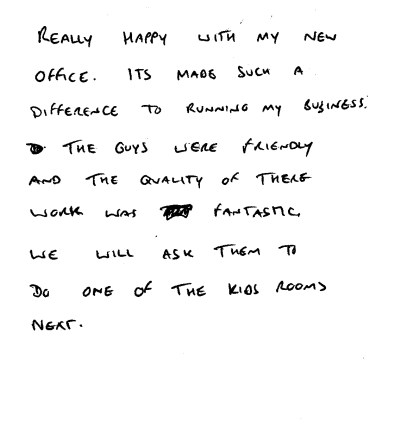 REALLY HAPPY WITH MY NEW
OFFICE. ITS MADE SUCH A
DIFFERENCE TO RUNNING MY BUSINESS.
THE GUYS WERE FRIENDLY
AND THE QUALITY OF THERE
WORK WAS FANTASTIC,
WE WILL ASK THEM TO
DO ONE OF THE KIDS ROOMS
NEXT.